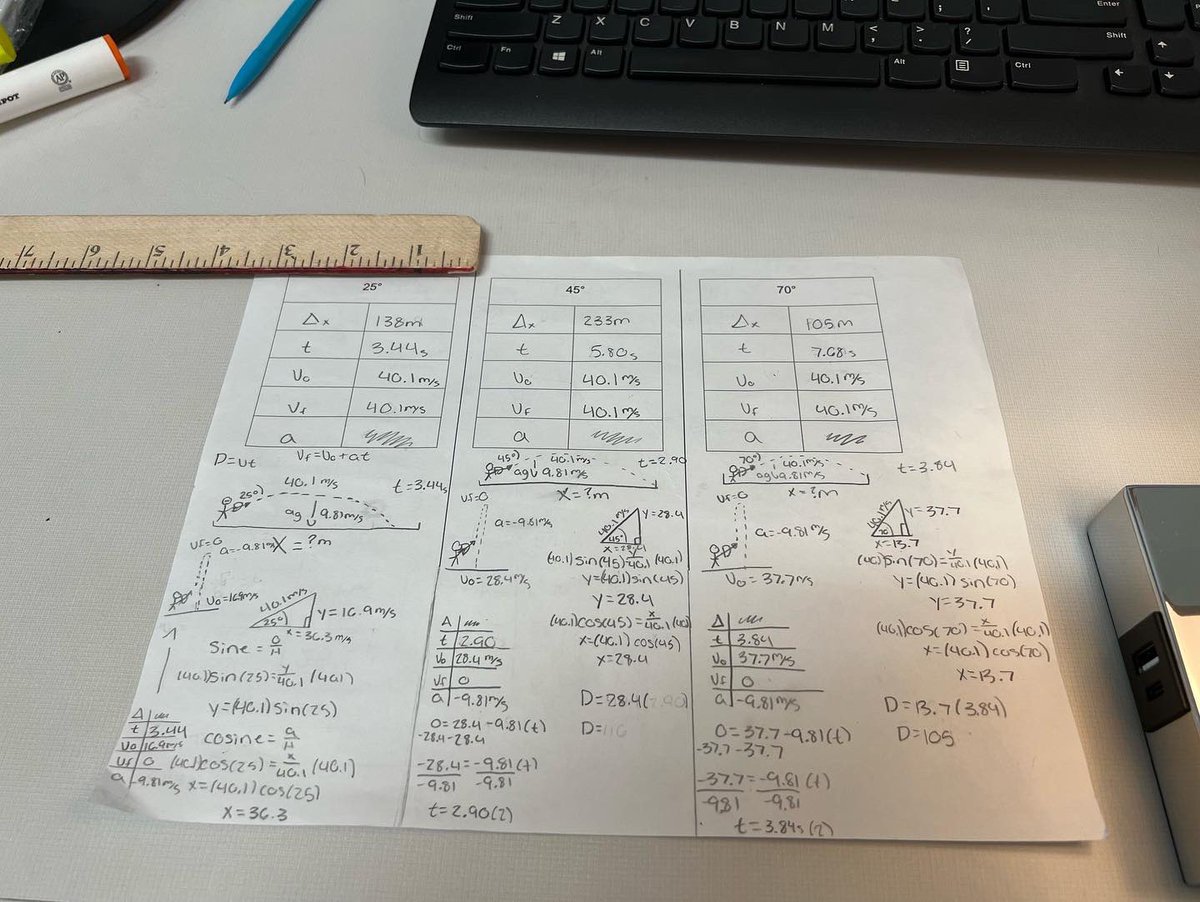 Enter
Shift
Z X C V B N M < , > . ? /
Shift
Ctrl
Fn
Alt
Alt
Ctrl
7 6 5 4 3 2 1
25°
Δx 138m
t 3.44s
Vo 40.1m/s
Vf 40.1m/s
a
D=vt
Vf=Vo+at
40.1 m/s
25°)
t=3.44s
ag 9.81m/s
X=?m
Vf=0
a=-9.81m/s
Vo=16.9m/s
40.1m/s
25°
y=16.9m/s
x=36.3m/s
Sine = O/H
(40.1)sin(25)=y/40.1 (40.1)
y=(40.1)sin(25)
cosine = a/H
(40.1)cos(25)=x/40.1 (40.1)
x=(40.1)cos(25)
x=36.3
Δ
t 3.44
Vo 16.9m/s
Vf 0
a -9.81m/s
45°
Δx 233m
t 5.80s
Vo 40.1m/s
Vf 40.1m/s
a
45°) 40.1m/s
t=2.90
ag 9.81m/s
X=?m
Vf=0
a=-9.81m/s
Vo=28.4m/s
40.1m/s
45°
y=28.4
x=28.4
(40.1)sin(45)=y/40.1 (40.1)
y=(40.1)sin(45)
y=28.4
(40.1)cos(45)=x/40.1 (40.1)
x=(40.1)cos(45)
x=28.4
Δ
t 2.90
Vo 28.4m/s
Vf 0
a -9.81m/s
D=28.4(2.90)
D=
0=28.4-9.81(t)
-28.4-28.4
-28.4/-9.81=-9.81(t)/-9.81
t=2.90(2)
70°
Δx 105m
t 7.68s
Vo 40.1m/s
Vf 40.1m/s
a
70°) 40.1m/s
t=3.84
ag 9.81m/s
x=?m
Vf=0
a=-9.81m/s
Vo=37.7m/s
40.1m/s
70
y=37.7
x=13.7
(40.1)sin(70)=y/40.1 (40.1)
y=(40.1)sin(70)
y=37.7
(40.1)cos(70)=x/40.1 (40.1)
x=(40.1)cos(70)
x=13.7
Δ
t 3.84
Vo 37.7m/s
Vf 0
a -9.81m/s
D=13.7(3.84)
D=105
0=37.7-9.81(t)
-37.7-37.7
-37.7/-9.81=-9.81(t)/-9.81
t=3.84s(2)